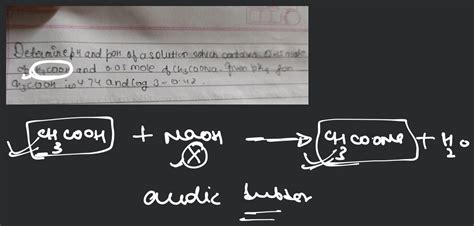 Determine pH and pOH of a solution which contains 0.15 mole
of CH3COOH and 0.05 mole of CH3COONa. Given pKa for
CH3COOH is 4.74 and log 3 = 0.48.
CH3COOH + NaOH → CH3COONa + H2O
acidic buffer